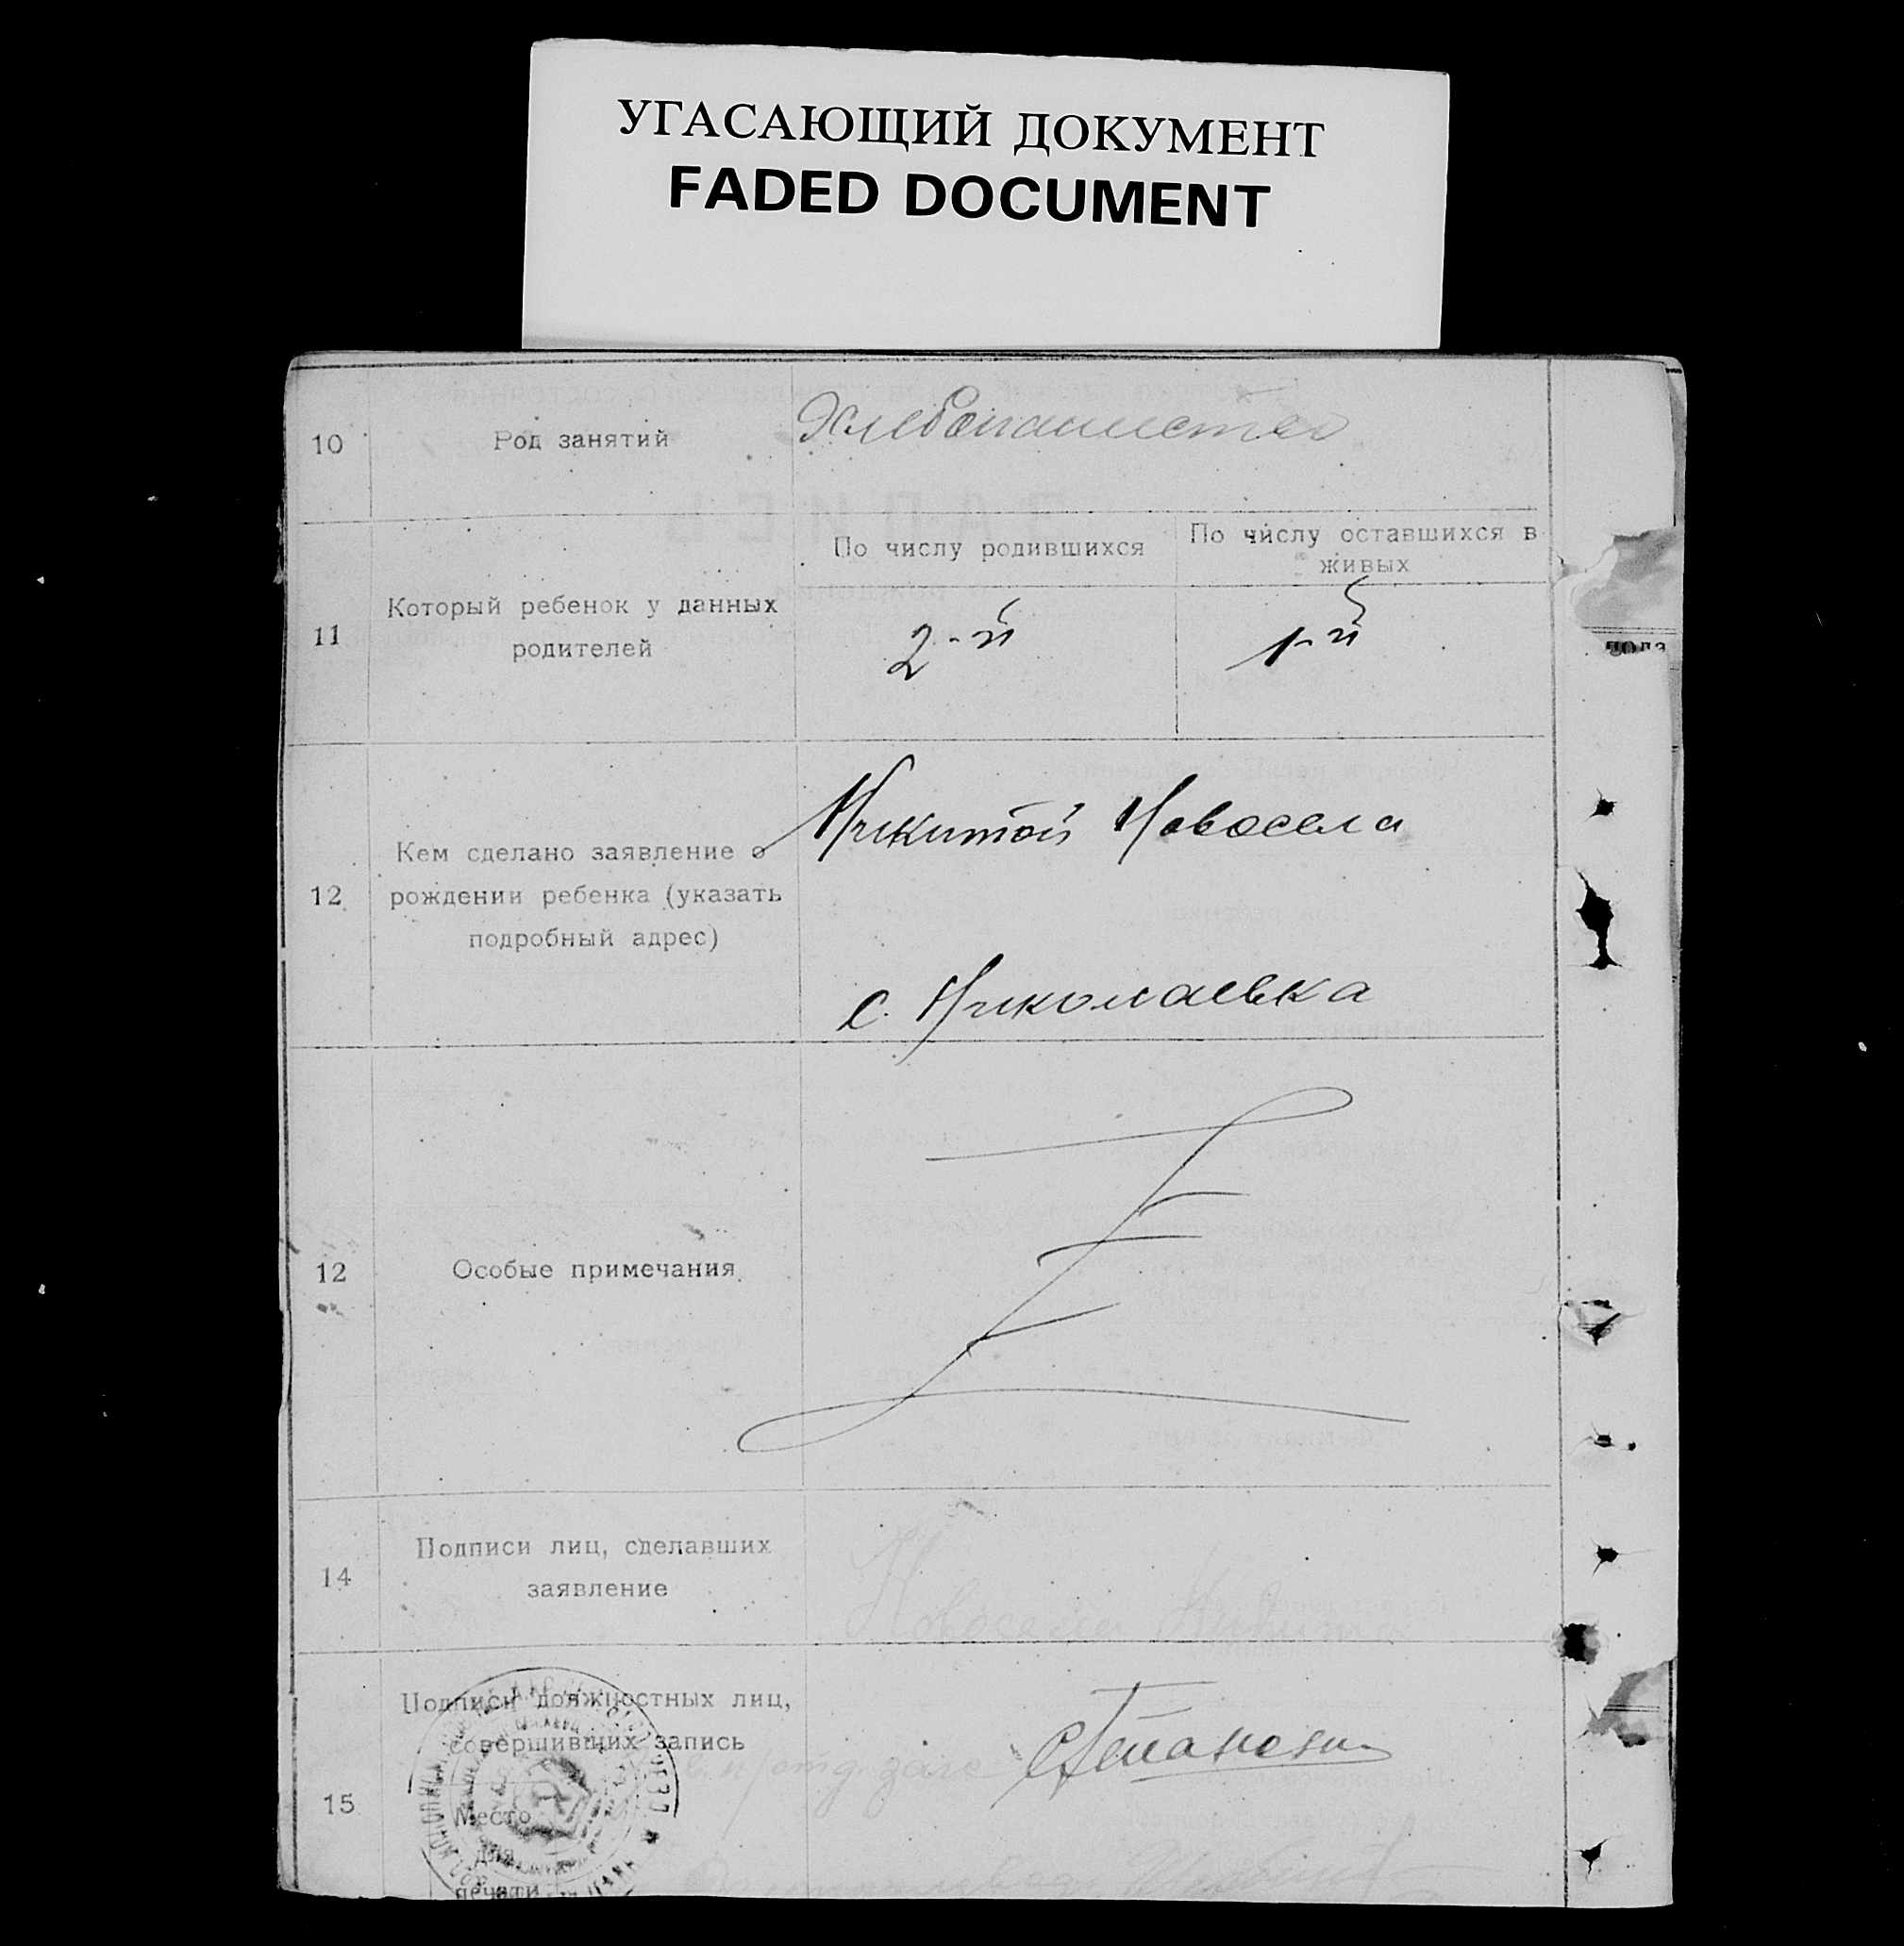 УГАСАЮЩИЙ ДОКУМЕНТ
FADED DOCUMENT
10 Род занятий Хлебопашество
11 Который ребенок у данных
родителей
По числу родившихся
2-й
По числу оставшихся в
живых
1-й
12 Кем сделано заявление о
рождении ребенка (указать
подробный адрес)
Никитой Новосела
с. Николаевка
12 Особые примечания
14 Подписи лиц, сделавших
заявление
Новосела Никита
15 Подписи должностных лиц,
совершивших запись
Место
для
печати